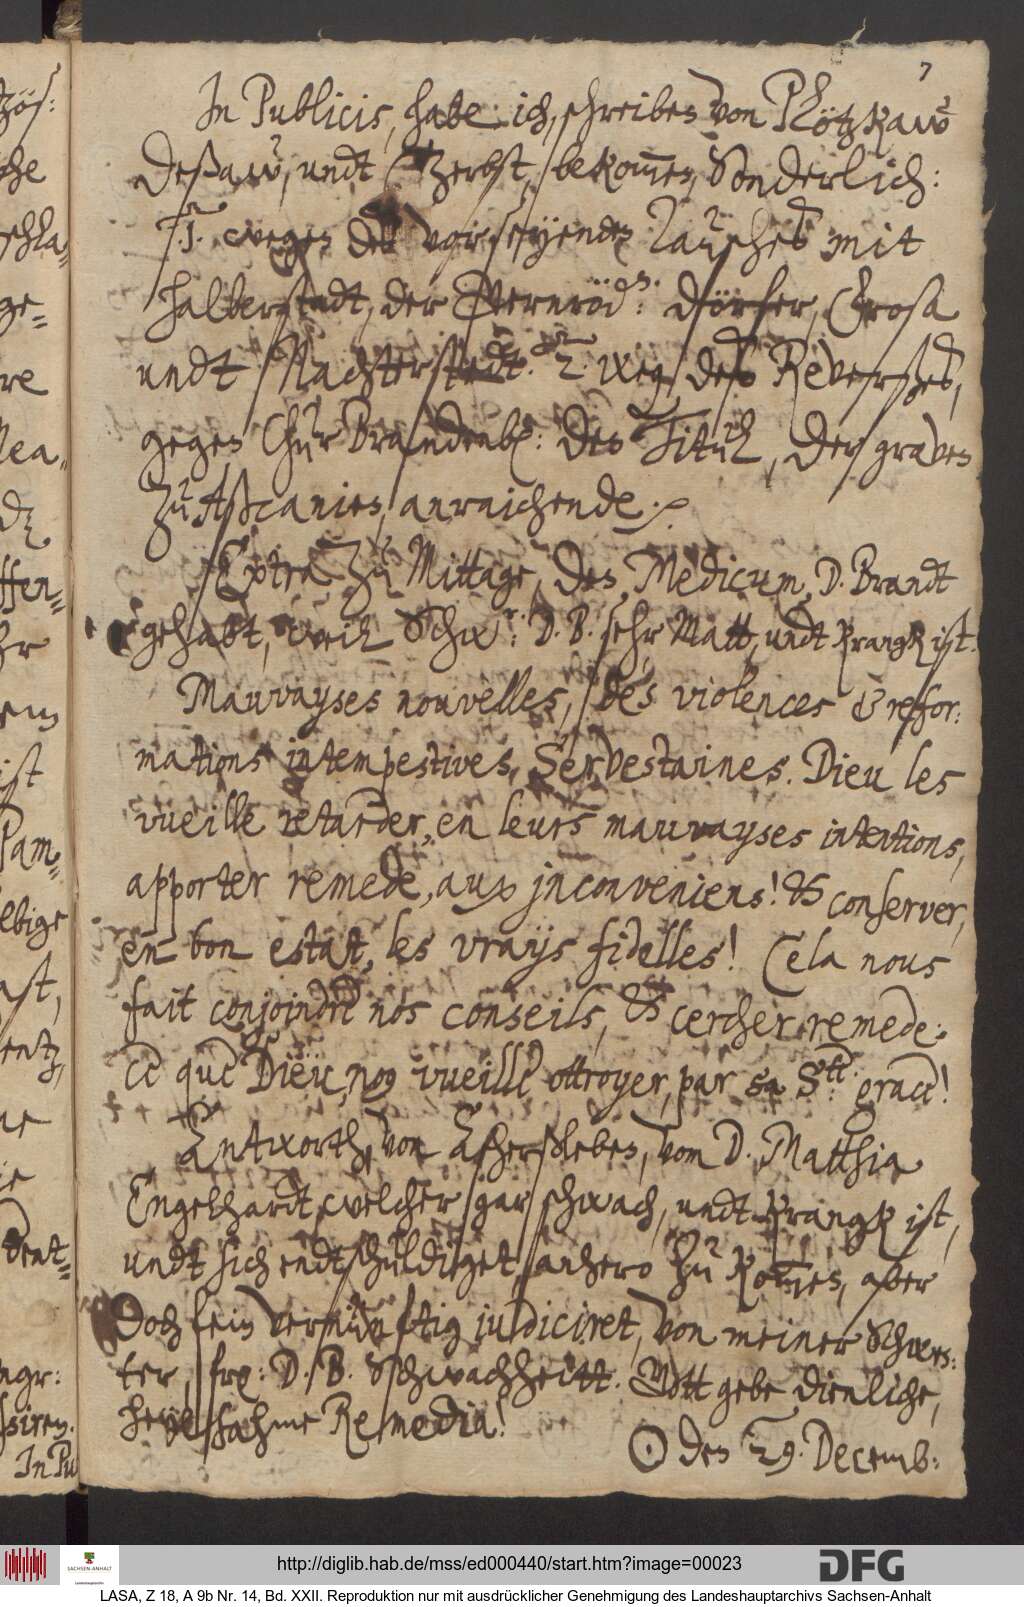 7
In Publicis, habe ich, schreiben von Plötzkaw
Deßaw, undt Zerbst, bekommen, Sonderlich:
1. wegen des vorseyenden Tausches mit
Halberstadt, der Gernröd: dörfer, Großa
undt Nachterstedt. 2. weg. deß Reverßes,
gegen Chur Brandenb: den Titul, der graven
zu Aßcanien, anraichende.
Extra zu Mittage, den Medicum, D. Brandt
gehabt, weil Schw: D. B. sehr Matt, undt krangk ist.
Mauvayses nouvelles, des violences & refor-
mations intempestives, Servestaines. Dieu les
vueille retarder, en leurs mauvayses intentions,
apporter remede, aux jnconveniens! & conserver,
en bon estat, les vrays fidelles! Cela nous
fait conjoindre nos conseils, & cercher remede:
Ce que Dieu, nos vueille ottroyer, par sa Ste: grace!
Antworth, von Aschersleben, vom D. Matthia
Engelhardt, welcher gar schwach, undt krangk ist,
undt sich endtschuldiget, anhero zu kommen, aber
Doch fein vernünftig judiciret, von meiner Schwes-
ter, frl: D. B. Schwachheitt. Gott gebe dienliche,
heylsahme Remedia!
☉ den 29. Decemb:
zös:
che
schla-
ge-
re
Nea-
ffen-
hr
ist
Pam-
ebige
ast,
entz,
ngr:
ssiren.
In Pu
http://diglib.hab.de/mss/ed000440/start.htm?image=00023
SACHSEN-ANHALT
DFG
LASA, Z 18, A 9b Nr. 14, Bd. XXII. Reproduktion nur mit ausdrücklicher Genehmigung des Landeshauptarchivs Sachsen-Anhalt